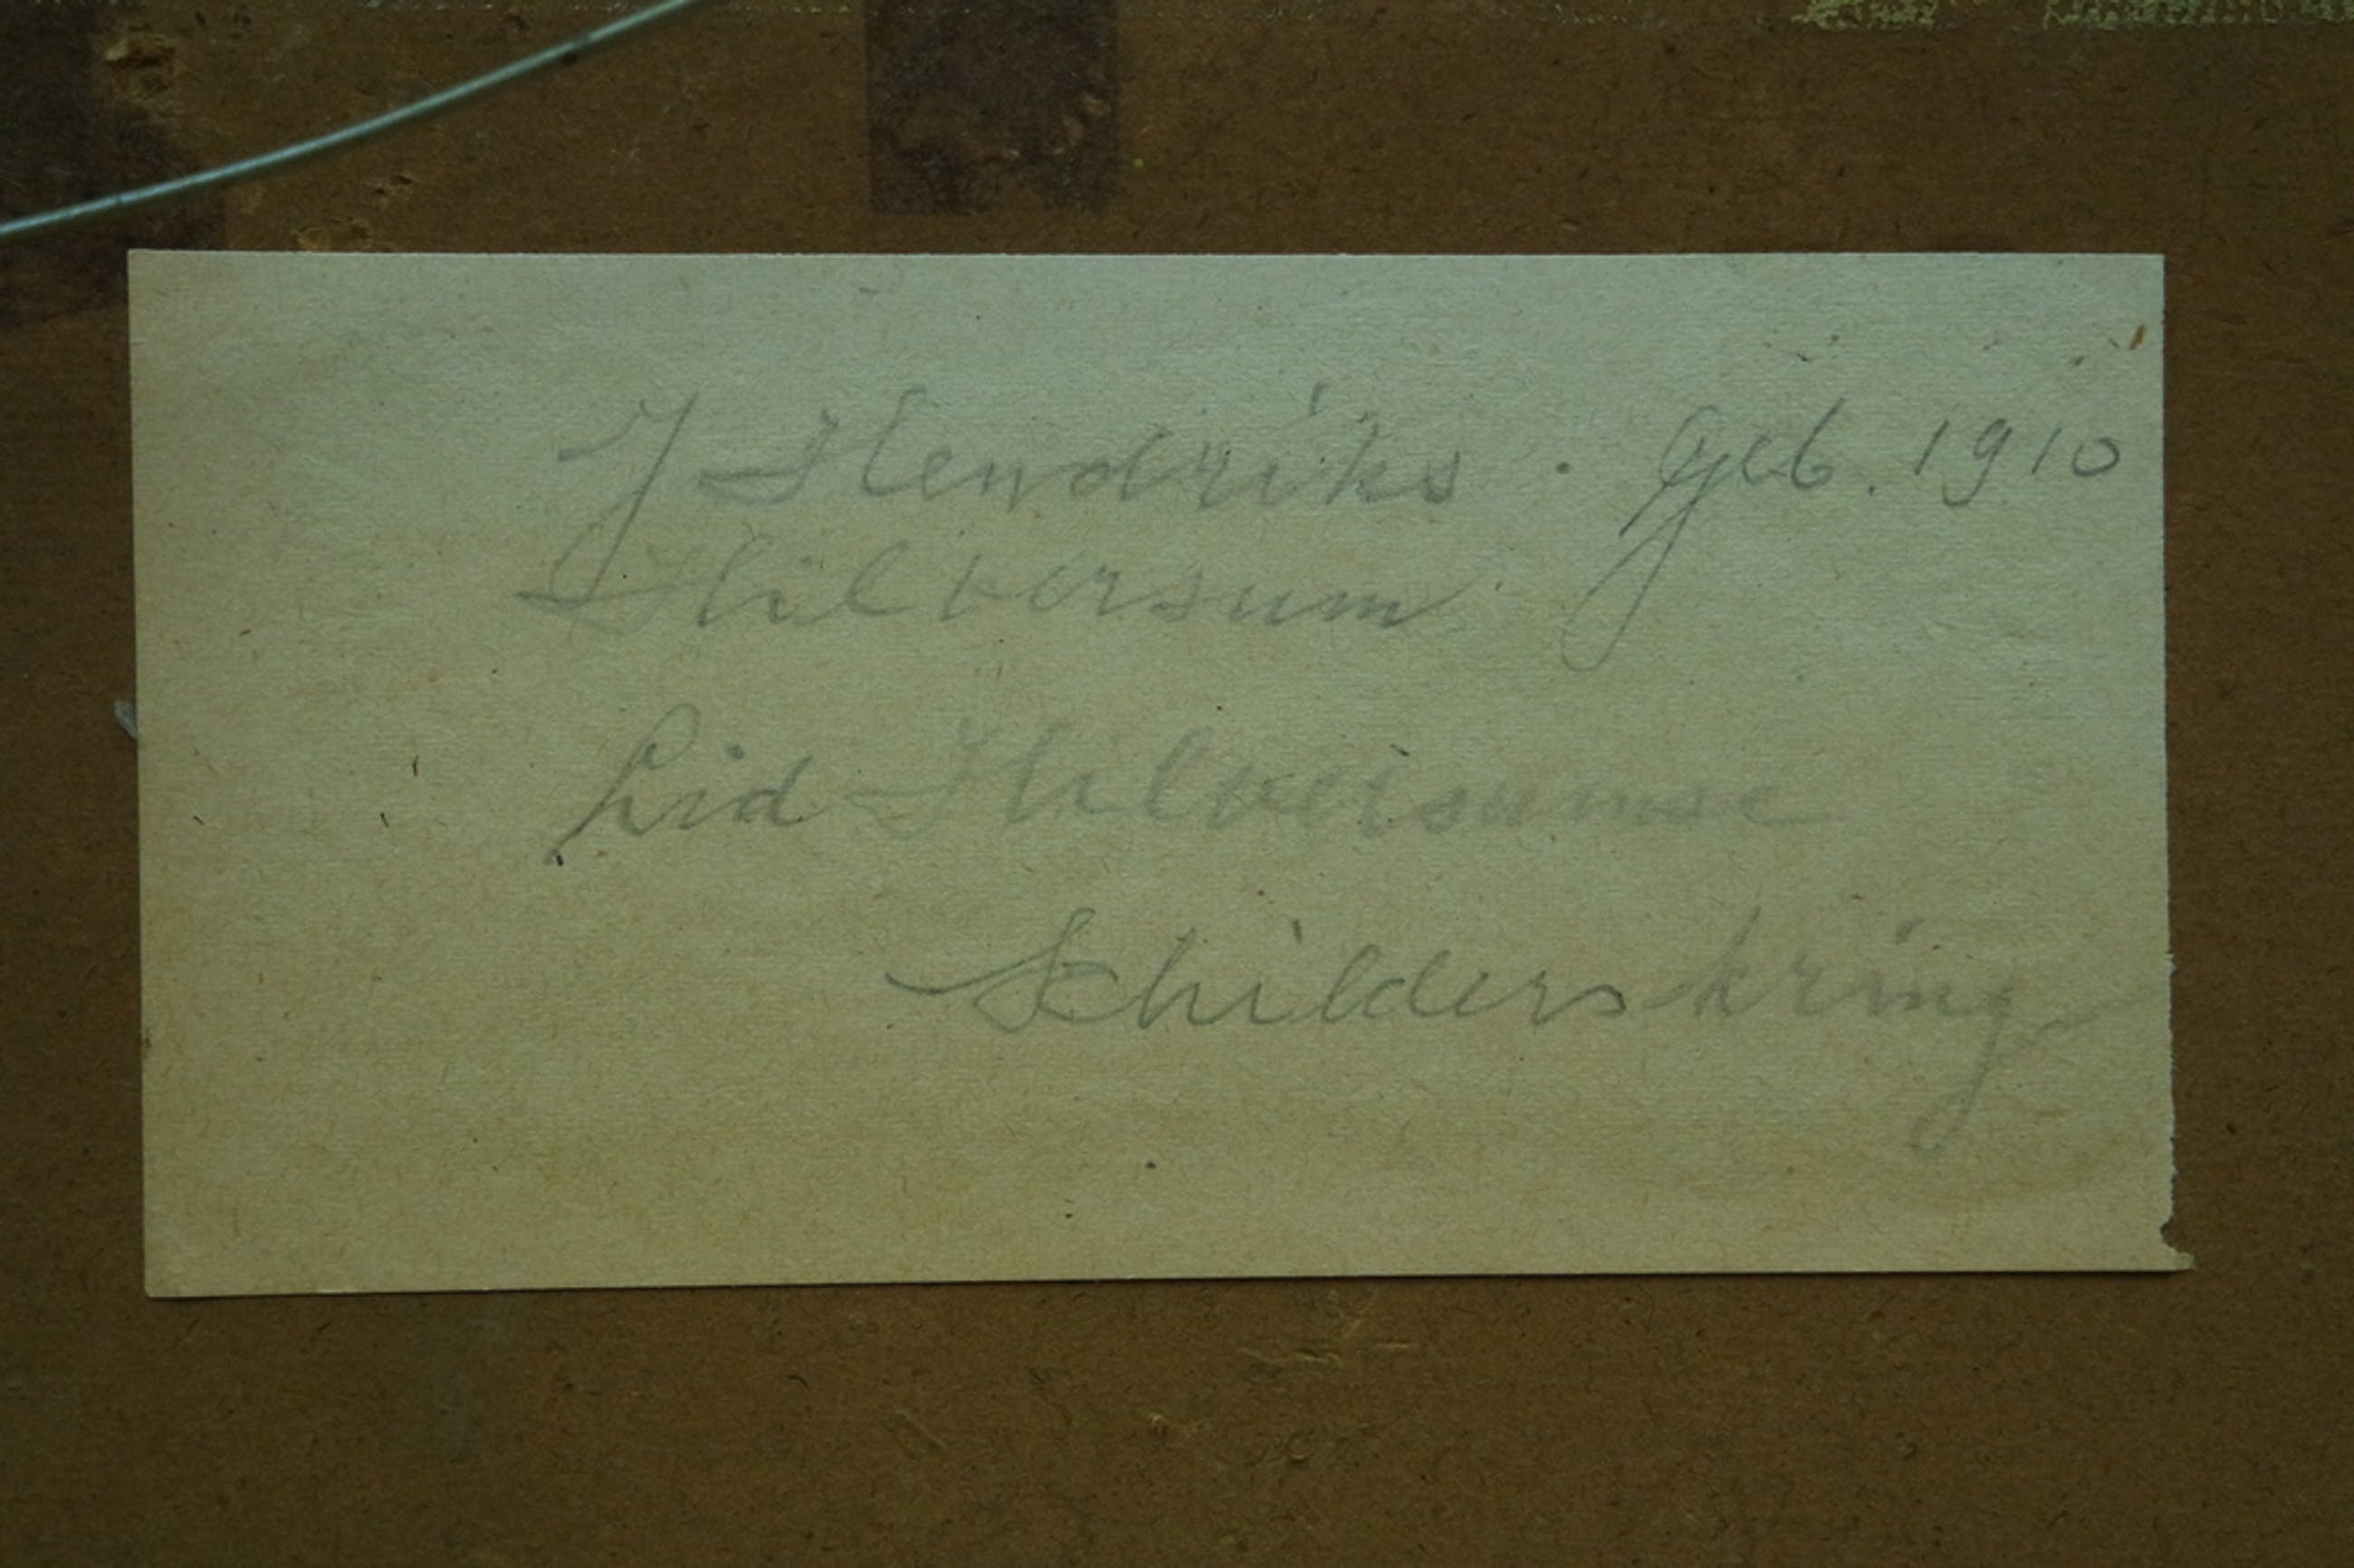 J Hendriks · geb. 1910
Hilversum
Lid Hilversumse
Schilderskring